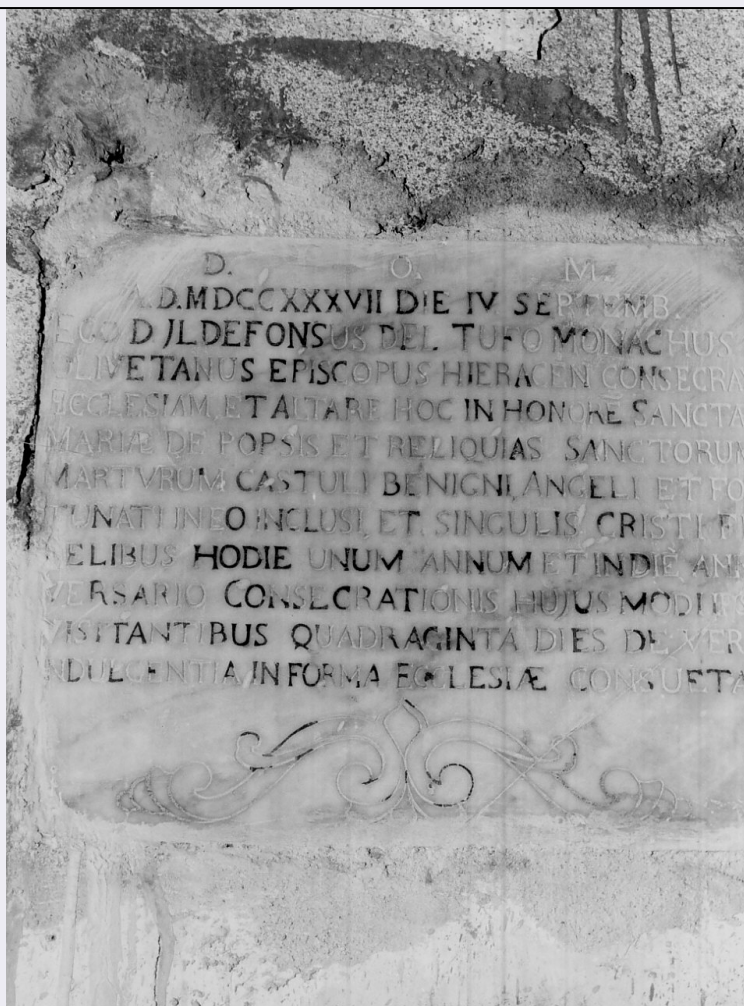 D. O. M.
A.D. MDCCXXXVII DIE IV SEPTEMB.
EGO D JLDEFONSUS DEL TUFO MONACHUS
OLIVETANUS EPISCOPUS HIERACEN CONSECRA
ECCLESIAM, ET ALTARE HOC IN HONORE SANCTA
MARIÆ DE POPSIS ET RELIQUIAS SANCTORUM
MARTYRUM CASTULI BENIGNI, ANGELI ET FO
TUNATI IN EO INCLUSI, ET SINGULIS CRISTI F
ELIBUS HODIE UNUM ANNUM ET IN DIE ANN
VERSARIO CONSECRATIONIS HUJUS MODI
VISITANTIBUS QUADRAGINTA DIES DE VER
NDULGENTIA IN FORMA ECCLESIÆ CONSUETA